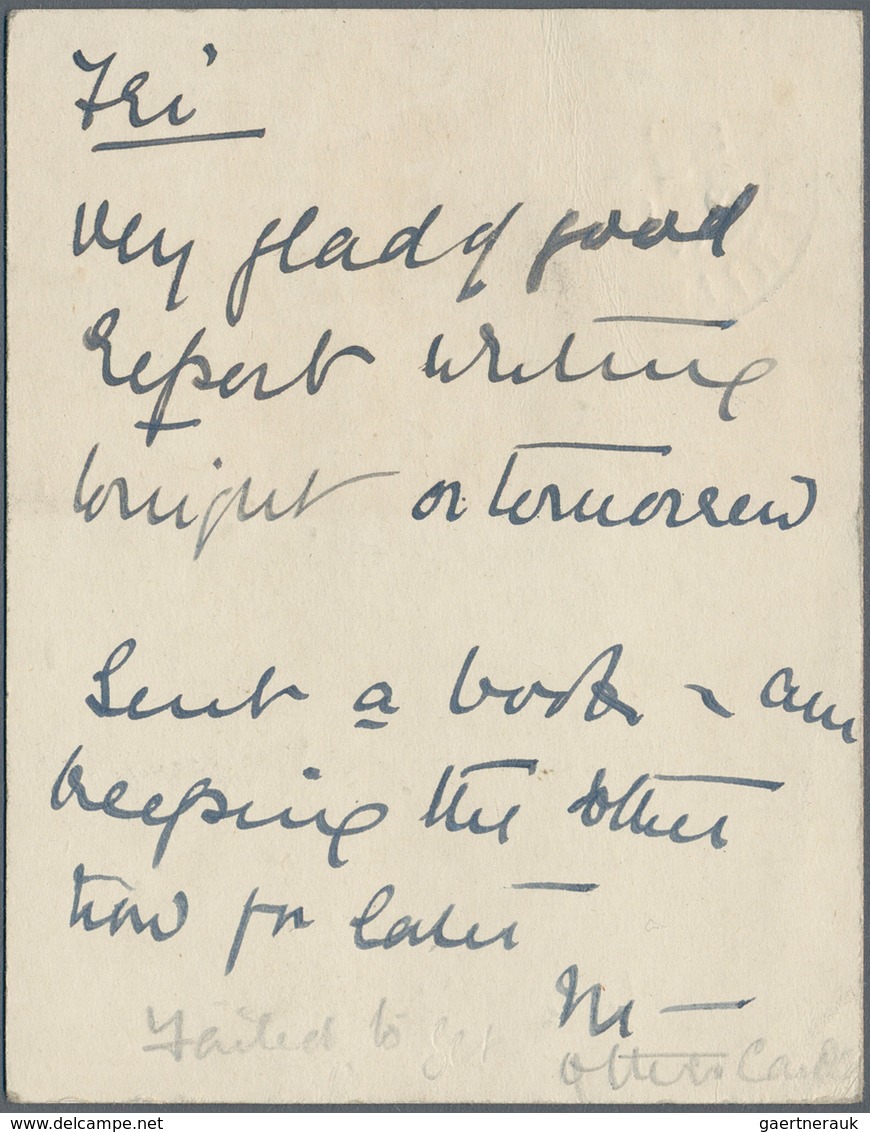 Fri
very glad of good
report writing
tonight or tomorrow
Sent a book & am
keeping the other
two for later
M —
Failed to get
others Card
gaertnerauk